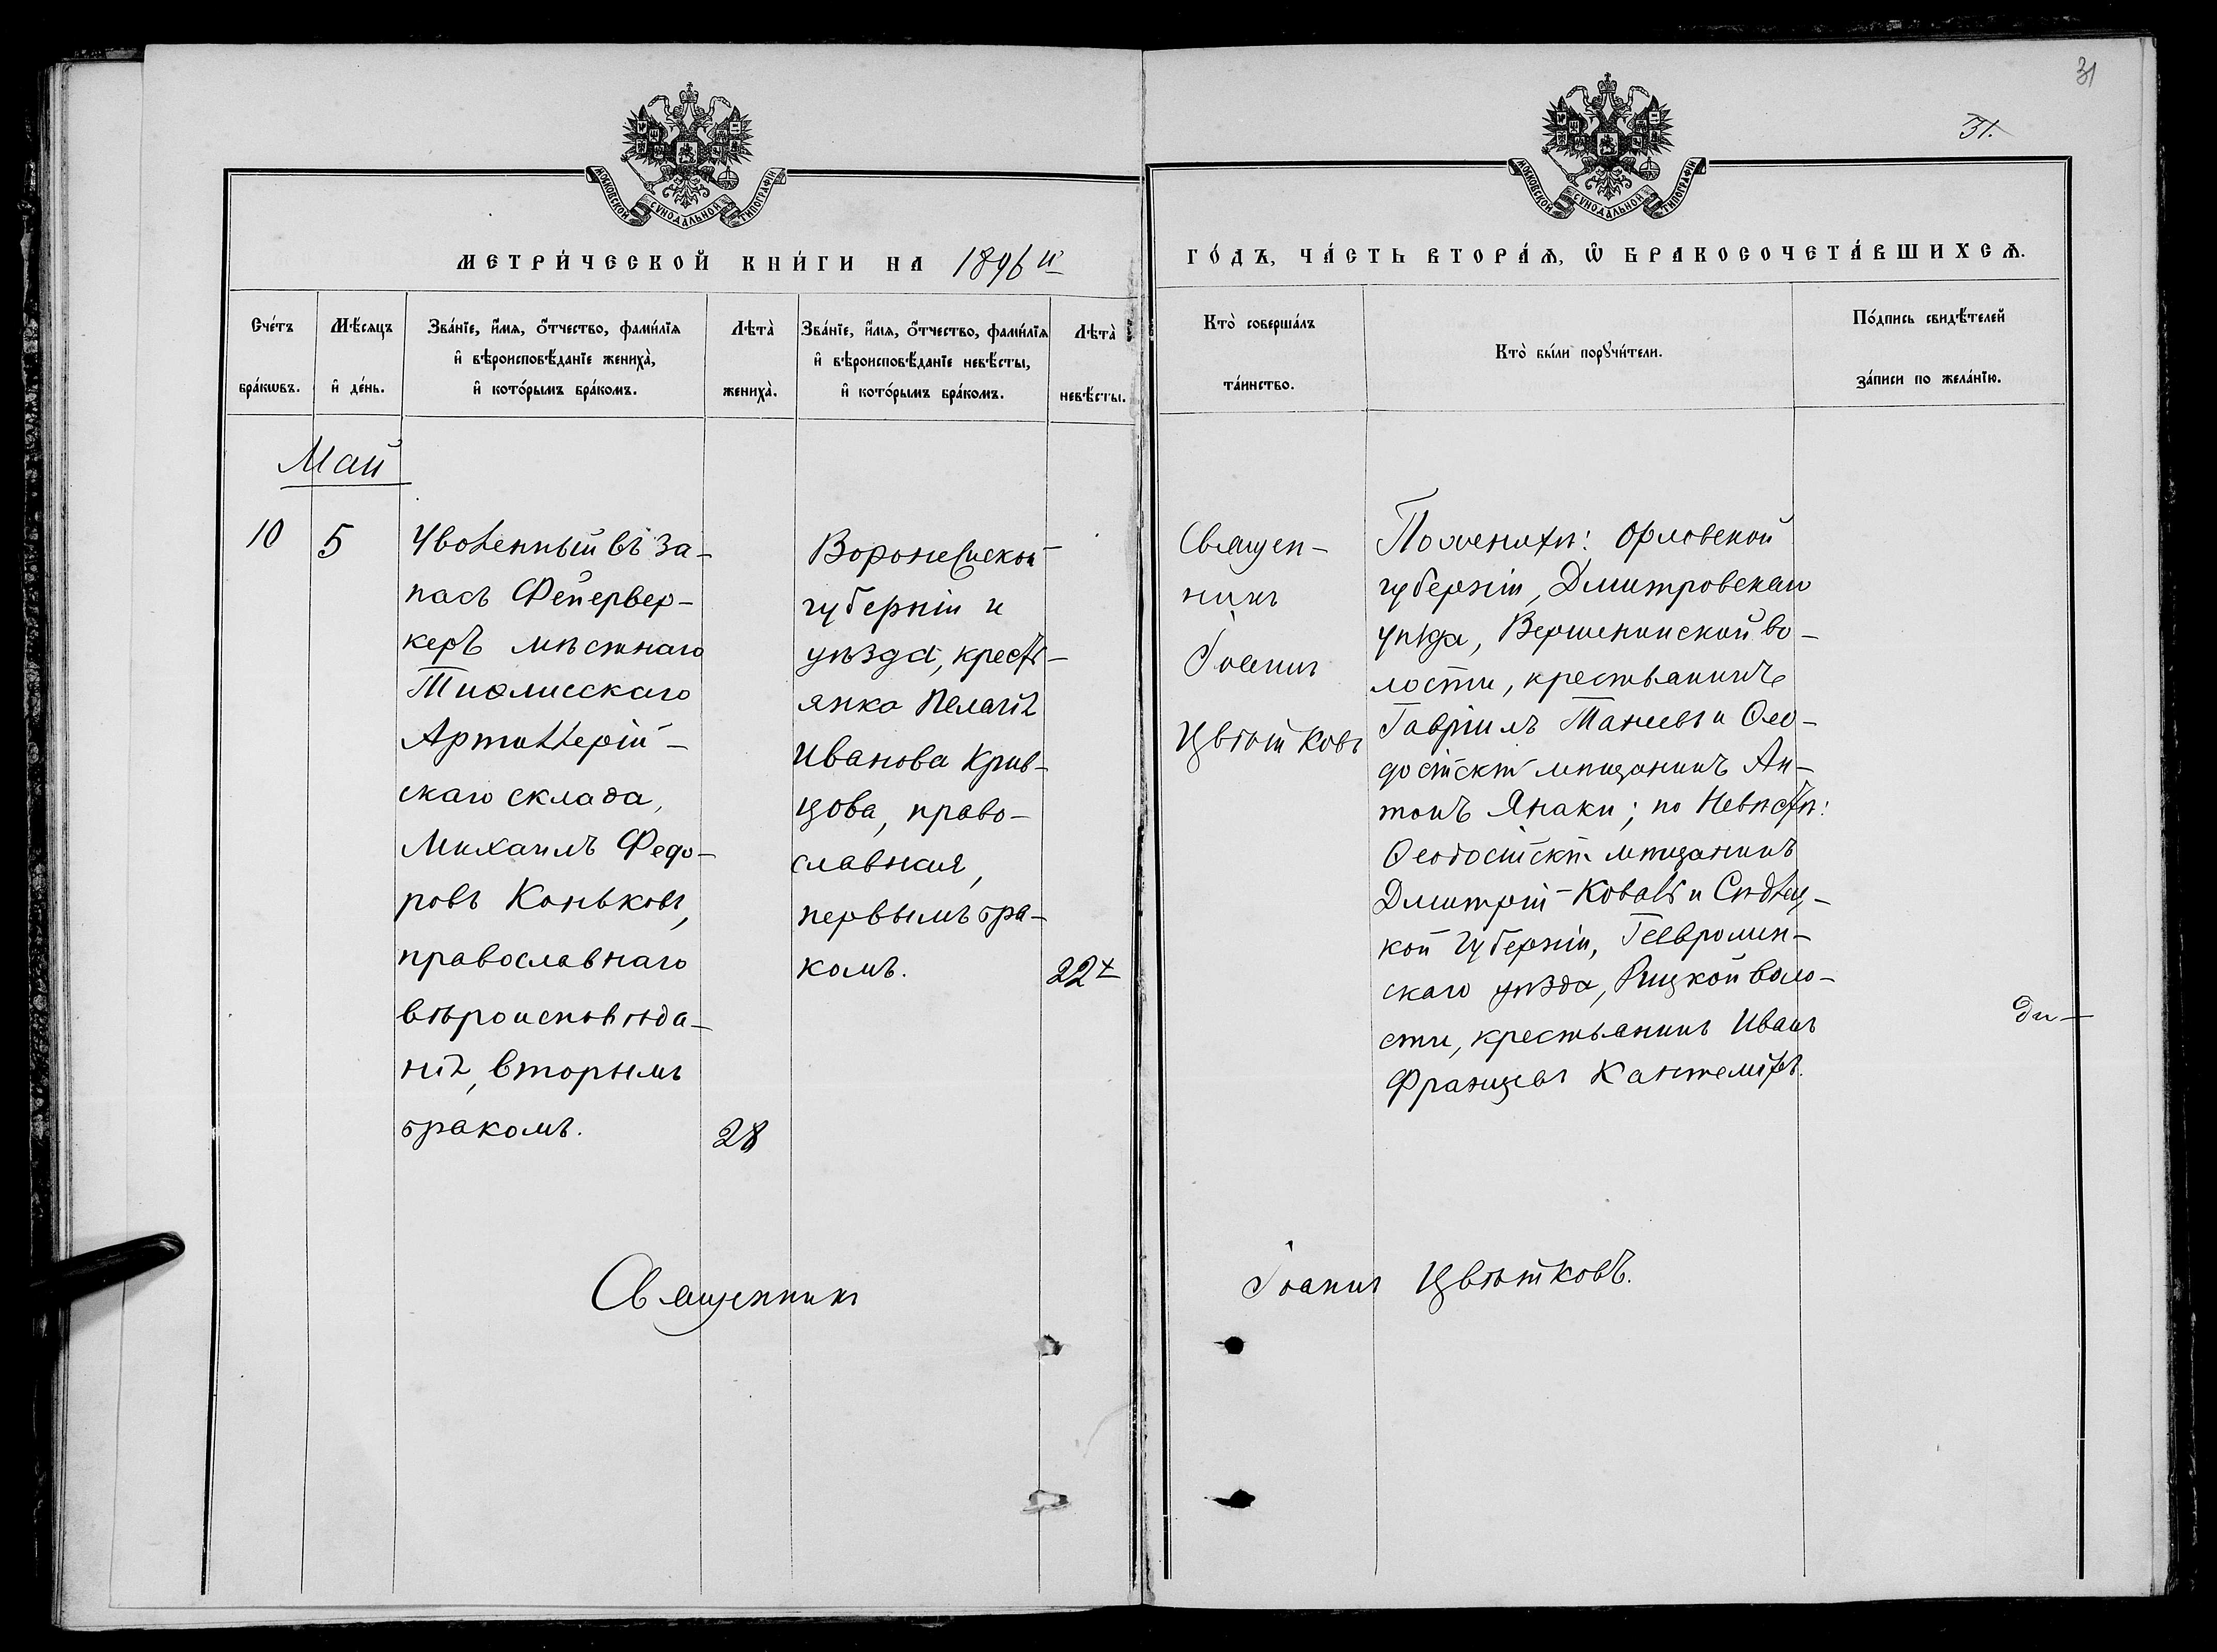 31
31.
МОСКОВСКОЙ СУНОДАЛЬНОЙ ТИПОГРАФІИ
МОСКОВСКОЙ СУНОДАЛЬНОЙ ТИПОГРАФІИ
МЕТРИ́ЧЕСКОЙ КНИ́ГИ НА 1896 й
ГО́ДЪ, ЧА́СТЬ ВТОРА́Ѧ, Ѽ БРАКОСОЧЕТА́ВШИХСѦ.
Сче́тъ бра́кѡвъ.
Мѣ́сяцъ и҆ де́нь.
Зва́нїе, и҆́мя, ѻ҆́тчество, фами́лїя
и҆ вѣроисповѣ́данїе жениха̀,
и҆ кото́рымъ бра́комъ.
Лѣта̀ жениха̀.
Зва́нїе, и҆́мя, ѻ҆́тчество, фами́лїя
и҆ вѣроисповѣ́данїе невѣ́сты,
и҆ кото́рымъ бра́комъ.
Лѣта̀ невѣ́сты.
Кто̀ соверша́лъ
та́инство.
Кто̀ бы́ли порꙋчи́тели.
По́дпись свидѣ́телей
за́писи по жела́нїю.
Май
10
5
Уволенный въ за-
пасъ Фейервер-
керъ мѣстнаго
Тифлисскаго
Артиллерій-
скаго склада,
Михаилъ Федо-
ровъ Коньковъ,
православнаго
вѣроисповѣда-
нія, вторымъ
бракомъ.
28
Воронежской
губерніи и
уѣзда, кресть-
янка Пелагія
Иванова Крив-
цова, право-
славная,
первымъ бра-
комъ.
22
Священ-
никъ
Іоаннъ
Цвѣтковъ
По женихѣ: Орловской
губерніи, Дмитровскаго
уѣзда, Вершининской во-
лости, крестьянинъ
Гавріилъ Танеевъ и Ѳео-
досійскій мѣщанинъ Ан-
тонъ Янаки; по Невѣстѣ:
Ѳеодосійскій мѣщанинъ
Дмитрій Коваль и Сѣдлец-
кой Губерніи,
скаго уѣзда, воло-
сти, крестьянинъ Иванъ
Францевъ Кантеміръ.
Священникъ
Іоаннъ Цвѣтковъ.